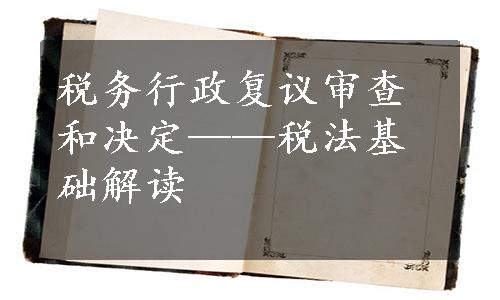 税务行政复议审查
和决定——税法基
础解读